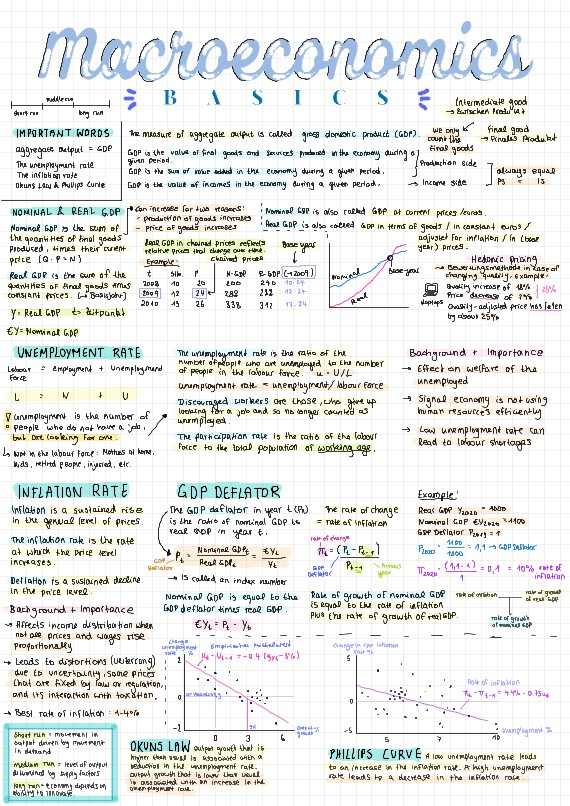 Macroeconomics
BASICS
middle run
short run
long run
Intermediate good
→ Vorleistung Produkt
IMPORTANT WORDS
aggregate output = GDP
The unemployment rate
The inflation rate
Okuns Law & Phillips Curve
The measure of aggregate output is called gross domestic product (GDP).
we only count the final goods
final good
→ Finales Produkt
GDP is the value of final goods and services produced in the economy during a
given period.
GDP is the sum of value added in the economy during a given period.
Production side
GDP is the value of incomes in the economy during a given period.
→ Income side
always equal
PS = IS
NOMINAL & REAL GDP
Nominal GDP is the sum of
the quantities of final goods
produced, times their current
price (Q · P = N)
Real GDP is the sum of the
quantities of final goods times
constant prices. (→ Basisjahr)
Y = Real GDP t = Zeitpunkt
€Y = Nominal GDP
Can increase for two reasons:
- production of goods increases
- price of goods increases
Nominal GDP is also called GDP at current prices/euros.
Real GDP is also called GDP in terms of goods / in constant euros /
adjusted for inflation / in (base
year) prices.
Real GDP in chained prices reflects
relative prices that change over time
chained prices
Base year
Example:
t P N-GDP R-GDP (→2009)
2008 10 20 200 240 10·24
2009 12 24 288 288 12·24
2010 13 26 338 312 13·24
Nominal
Real
Base year
Hedonic pricing
→ Bewertungsmethode in case of
changing quality, example:
laptops
Quality increase of 18%
Price decrease of 7%
25%
Quality-adjusted price has fallen
by about 25%
UNEMPLOYMENT RATE
Labour force = Employment + Unemployment
L = N + U
Unemployment is the number of
people who do not have a job,
but are looking for one.
↳ Not in the labour force: Mothers at home,
kids, retired people, injured, etc.
The unemployment rate is the ratio of the
number of people who are unemployed to the number
of people in the labour force. u = U/L
unemployment rate = unemployment / labour force
Discouraged workers are those, who give up
looking for a job and so no longer counted as
unemployed.
The participation rate is the ratio of the labour
force to the total population of working age.
Background + Importance
→ Effect on welfare of the
unemployed
→ Signal economy is not using
human resources efficiently
→ Low unemployment rate can
lead to labour shortages
INFLATION RATE
Inflation is a sustained rise
in the general level of prices.
The inflation rate is the rate
at which the price level
increases.
Deflation is a sustained decline
in the price level.
Background + Importance
→ Affects income distribution when
not all prices and wages rise
proportionally
→ Leads to distortions (Verzerrung)
due to uncertainty, some prices
that are fixed by law or regulation,
and its interaction with taxation.
→ Best rate of inflation: 1-4%
short run = movement in
output driven by movement
in demand
medium run = level of output
determined by supply factors
long run = economy depends on
ability to innovate
GDP DEFLATOR
The GDP deflator in year t (Pt)
is the ratio of nominal GDP to
real GDP in year t.
Pt = Nominal GDPt / Real GDPt = €Yt / Yt
GDP Deflator
→ Is called an index number
Nominal GDP is equal to the
GDP deflator times real GDP.
€Yt = Pt · Yt
The rate of change
= rate of inflation
rate of change
πt = (Pt - Pt-1) / Pt-1
GDP Deflator
Example:
Real GDP Y2020 = 1000
Nominal GDP €Y2020 = 1100
GDP Deflator P2019 = 1
P2020 = 1100/1000 = 1,1 → GDP Deflator
π2020 = (1,1-1)/1 = 0,1 = 10% rate of inflation
Rate of growth of nominal GDP
is equal to the rate of inflation
plus the rate of growth of real GDP.
rate of inflation
rate of growth of real GDP
rate of growth of nominal GDP
Change unemployment rate %
ut - ut-1 = -0.4 (gyt - 3%)
1
0
-1
0
3
6
Output growth %
OKUNS LAW Output growth that is
higher than usual is associated with a
reduction in the unemployment rate.
Output growth that is lower than usual
is associated with an increase in the
unemployment rate.
Change in the inflation rate %
5
0
-5
Rate of inflation
7
10
Unemployment %
PHILLIPS CURVE A low unemployment rate leads
to an increase in the inflation rate. A high unemployment
rate leads to a decrease in the inflation rate.